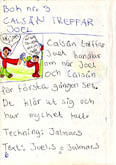 Bok nr. 3
CALSÅN TREFFAR
JOEL
Calsån träffar
Joel handlar
om när Joel
och Calsån
för första gången ses.
De klär ut sig och
har mycket kul!
Teckning: Jalmars
Text: Joels o Jalmars